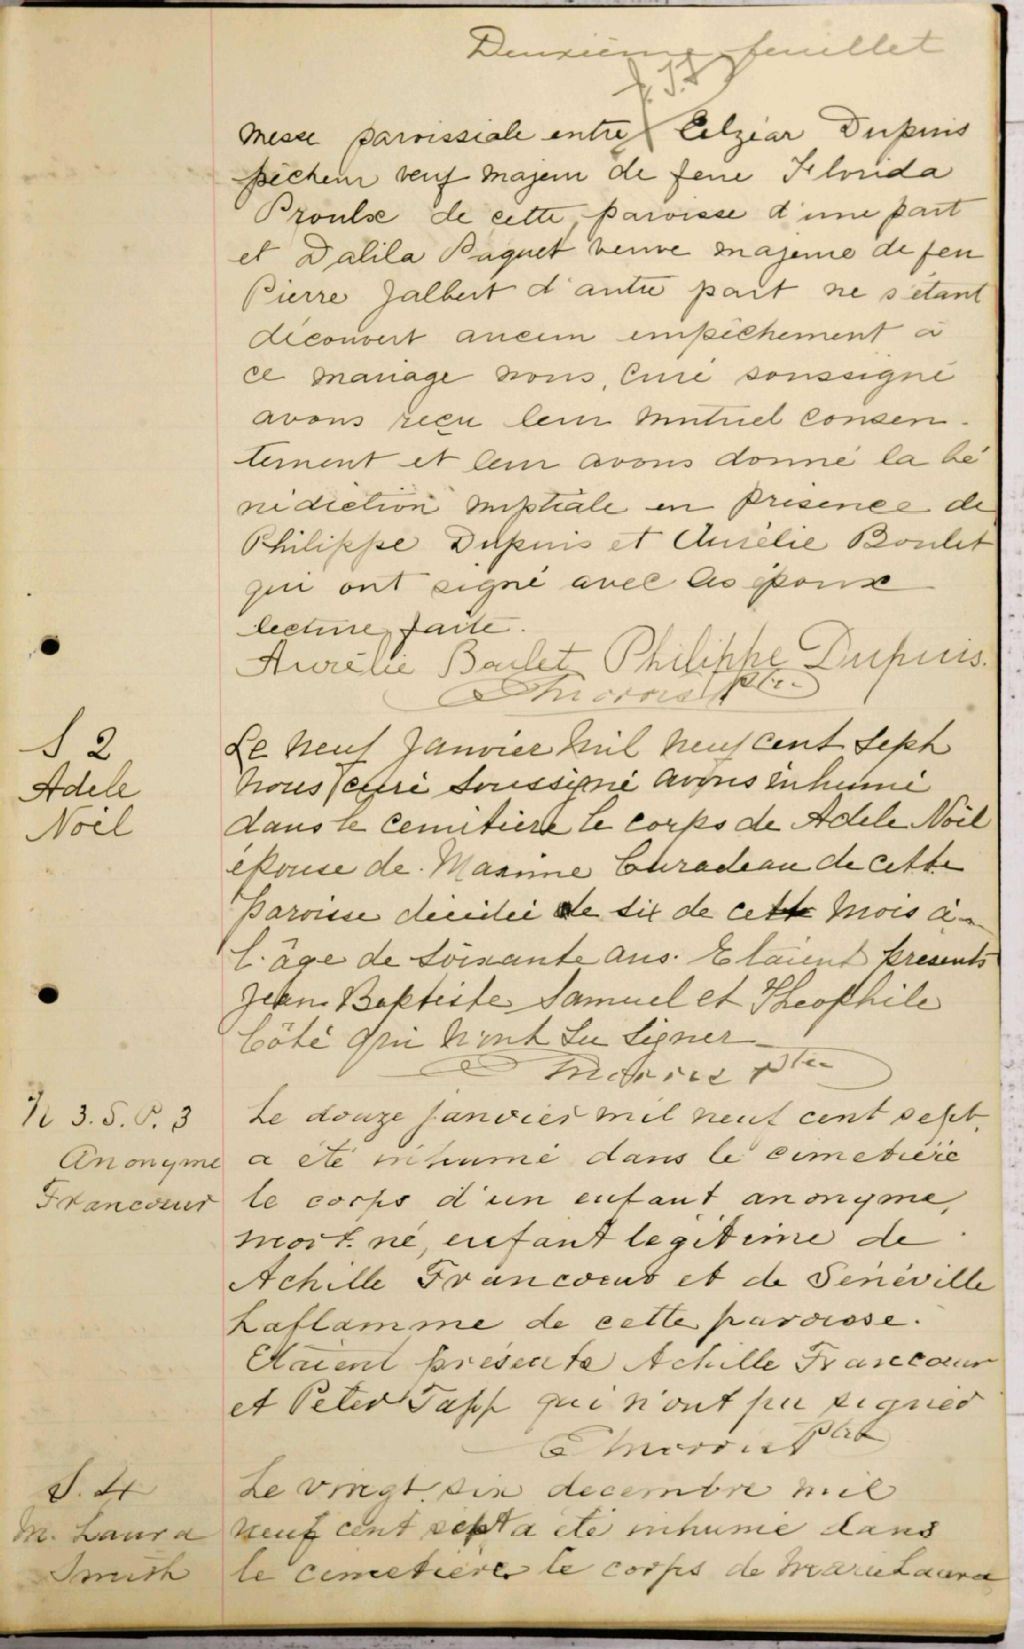 Deuxième feuillet
J. S. L
messe paroissiale entre Eelzéar Dupuis
pêcheur veuf majeur de feue Florida
Proulx de cette paroisse d'une part
et Dalila Paquet veuve majeure de feu
Pierre Jalbert d'autre part ne s'étant
découvert aucun empêchement à
ce mariage nous, curé soussigné
avons reçu leur mutuel consen-
tement et leur avons donné la bé
nédiction nuptiale en présence de
Philippe Dupuis et Aurélie Boulet
qui ont signé avec les époux
lecture faite.
Aurélie Boulet Philippe Dupuis.
E Morris Ptre
S 2
Adele
Noël
Le neuf Janvier mil neuf cent Sept
nous curé soussigné avons inhumé
dans le cemitière le corps de Adele Noël
épouse de Maxime Curadeau de cette
paroisse décédée le six de cette mois à
l'âge de soixante ans. Etaient présents
Jean Baptiste Samuel et Théophile
Côté qui n'ont su signer
E Morris Ptre
N 3. S. P. 3
Anonyme
Francœur
Le douze janvier mil neuf cent sept,
a été inhumé dans le cimetière
le corps d'un enfant anonyme,
mort-né, enfant légitime de
Achille Francœur et de Sénéville
Laflamme de cette paroisse.
Etaient présents Achille Francœur
et Peter Tapp qui n'ont pu signer
E Morris Ptre
S. 4
M. Laura
Smith
Le vingt-six decembre mil
neuf cent sept a été inhumé dans
le cimetière le corps de Marie Laura